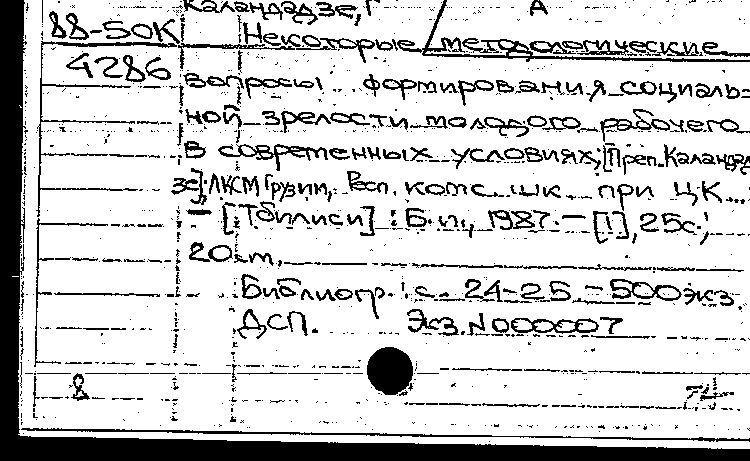 Каландадзе, Г А
88-50К Некоторые методологические
4286 вопросы формирования социаль-
ной зрелости молодого рабочего
в современных условиях; [Преп. Каландад
зе]; ЛКСМ Грузии, Респ. комс. шк. при ЦК...
— [Тбилиси] : Б. и., 1987. — [1], 25с.;
20 см.
Библиогр.: с. 24-25. - 500 экз.
ДСП. Экз. N000007
8 74